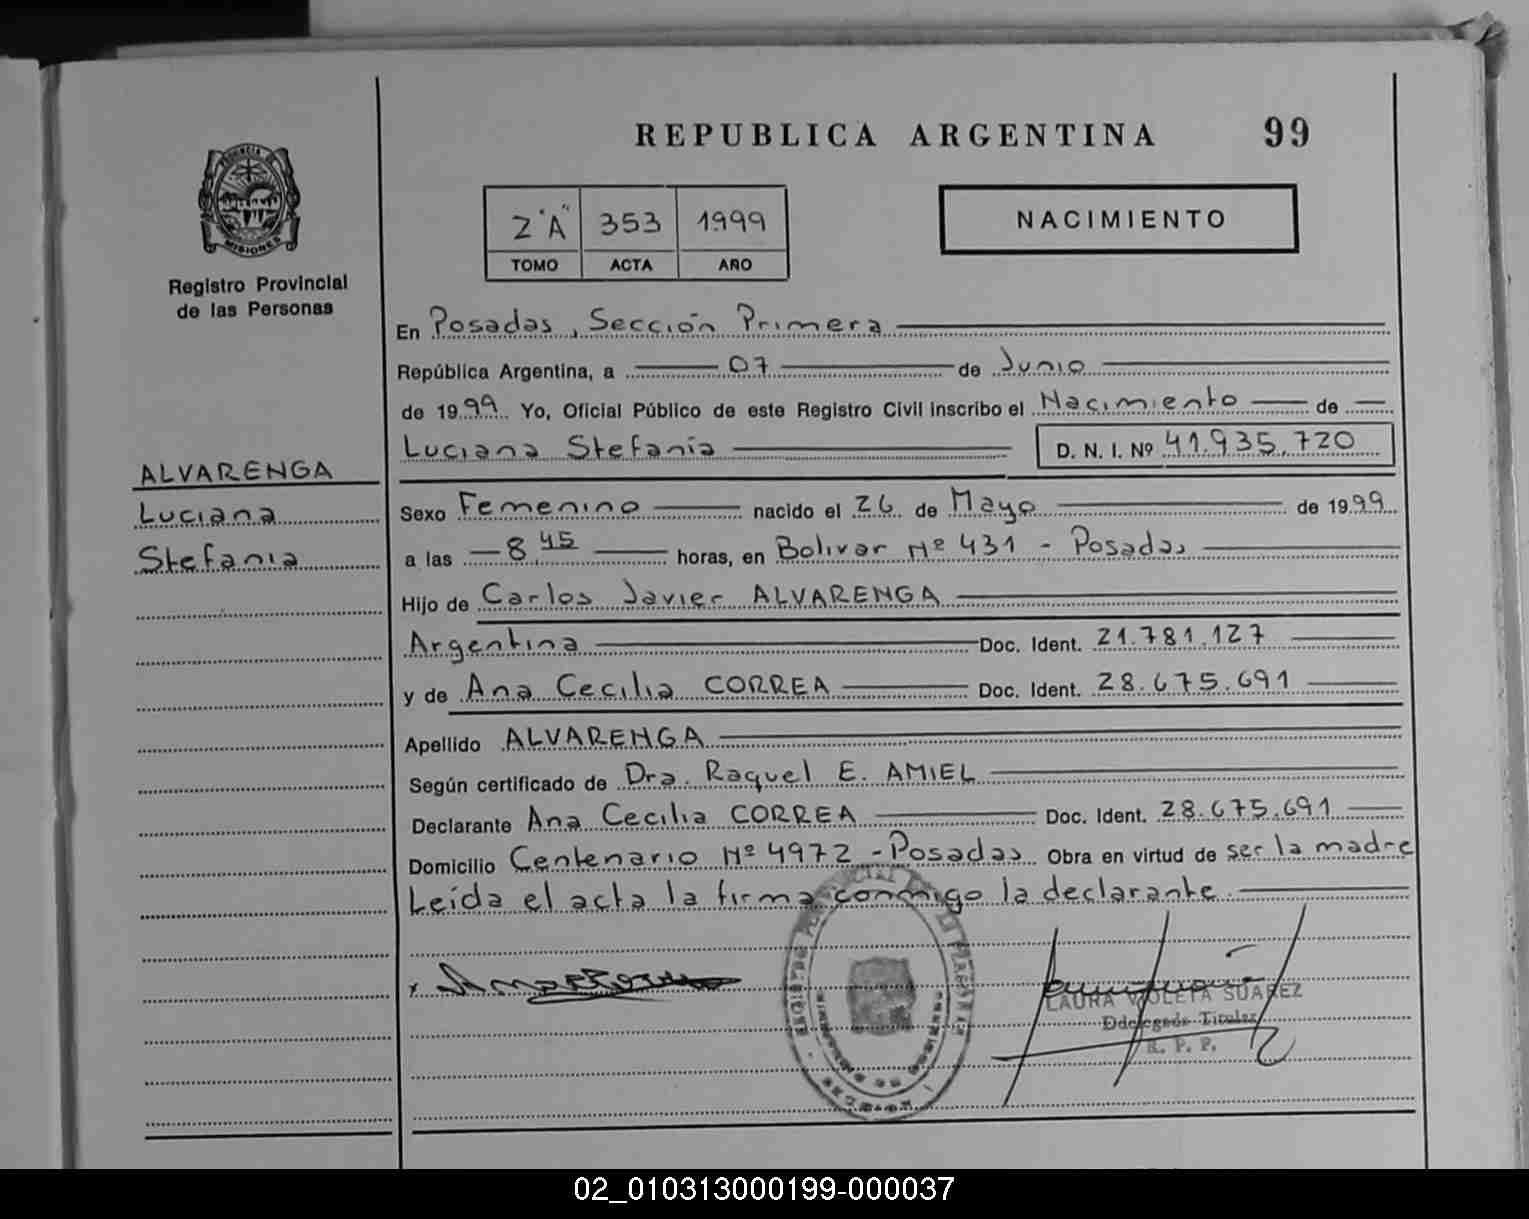 REPUBLICA ARGENTINA 99
PROVINCIA DE
MISIONES
Registro Provincial
de las Personas
2 "A" 353 1999
TOMO ACTA AÑO
NACIMIENTO
En Posadas, Sección Primera
República Argentina, a 07 de Junio
de 1999 Yo, Oficial Público de este Registro Civil inscribo el Nacimiento de
Luciana Stefanía D. N. I. Nº 41.935.720
ALVARENGA
Luciana
Stefanía
Sexo Femenino nacido el 26 de Mayo de 1999
a las 8 45 horas, en Bolivar Nº 431 - Posadas
Hijo de Carlos Javier ALVARENGA
Argentina Doc. Ident. 21.781.127
y de Ana Cecilia CORREA Doc. Ident. 28.675.691
Apellido ALVARENGA
Según certificado de Dra. Raquel E. AMIEL
Declarante Ana Cecilia CORREA Doc. Ident. 28.675.691
Domicilio Centenario Nº 4972 - Posadas Obra en virtud de ser la madre
Leída el acta la firma conmigo la declarante
LAURA VIOLETA SUAREZ
Titular
R. P. P.
02_010313000199-000037